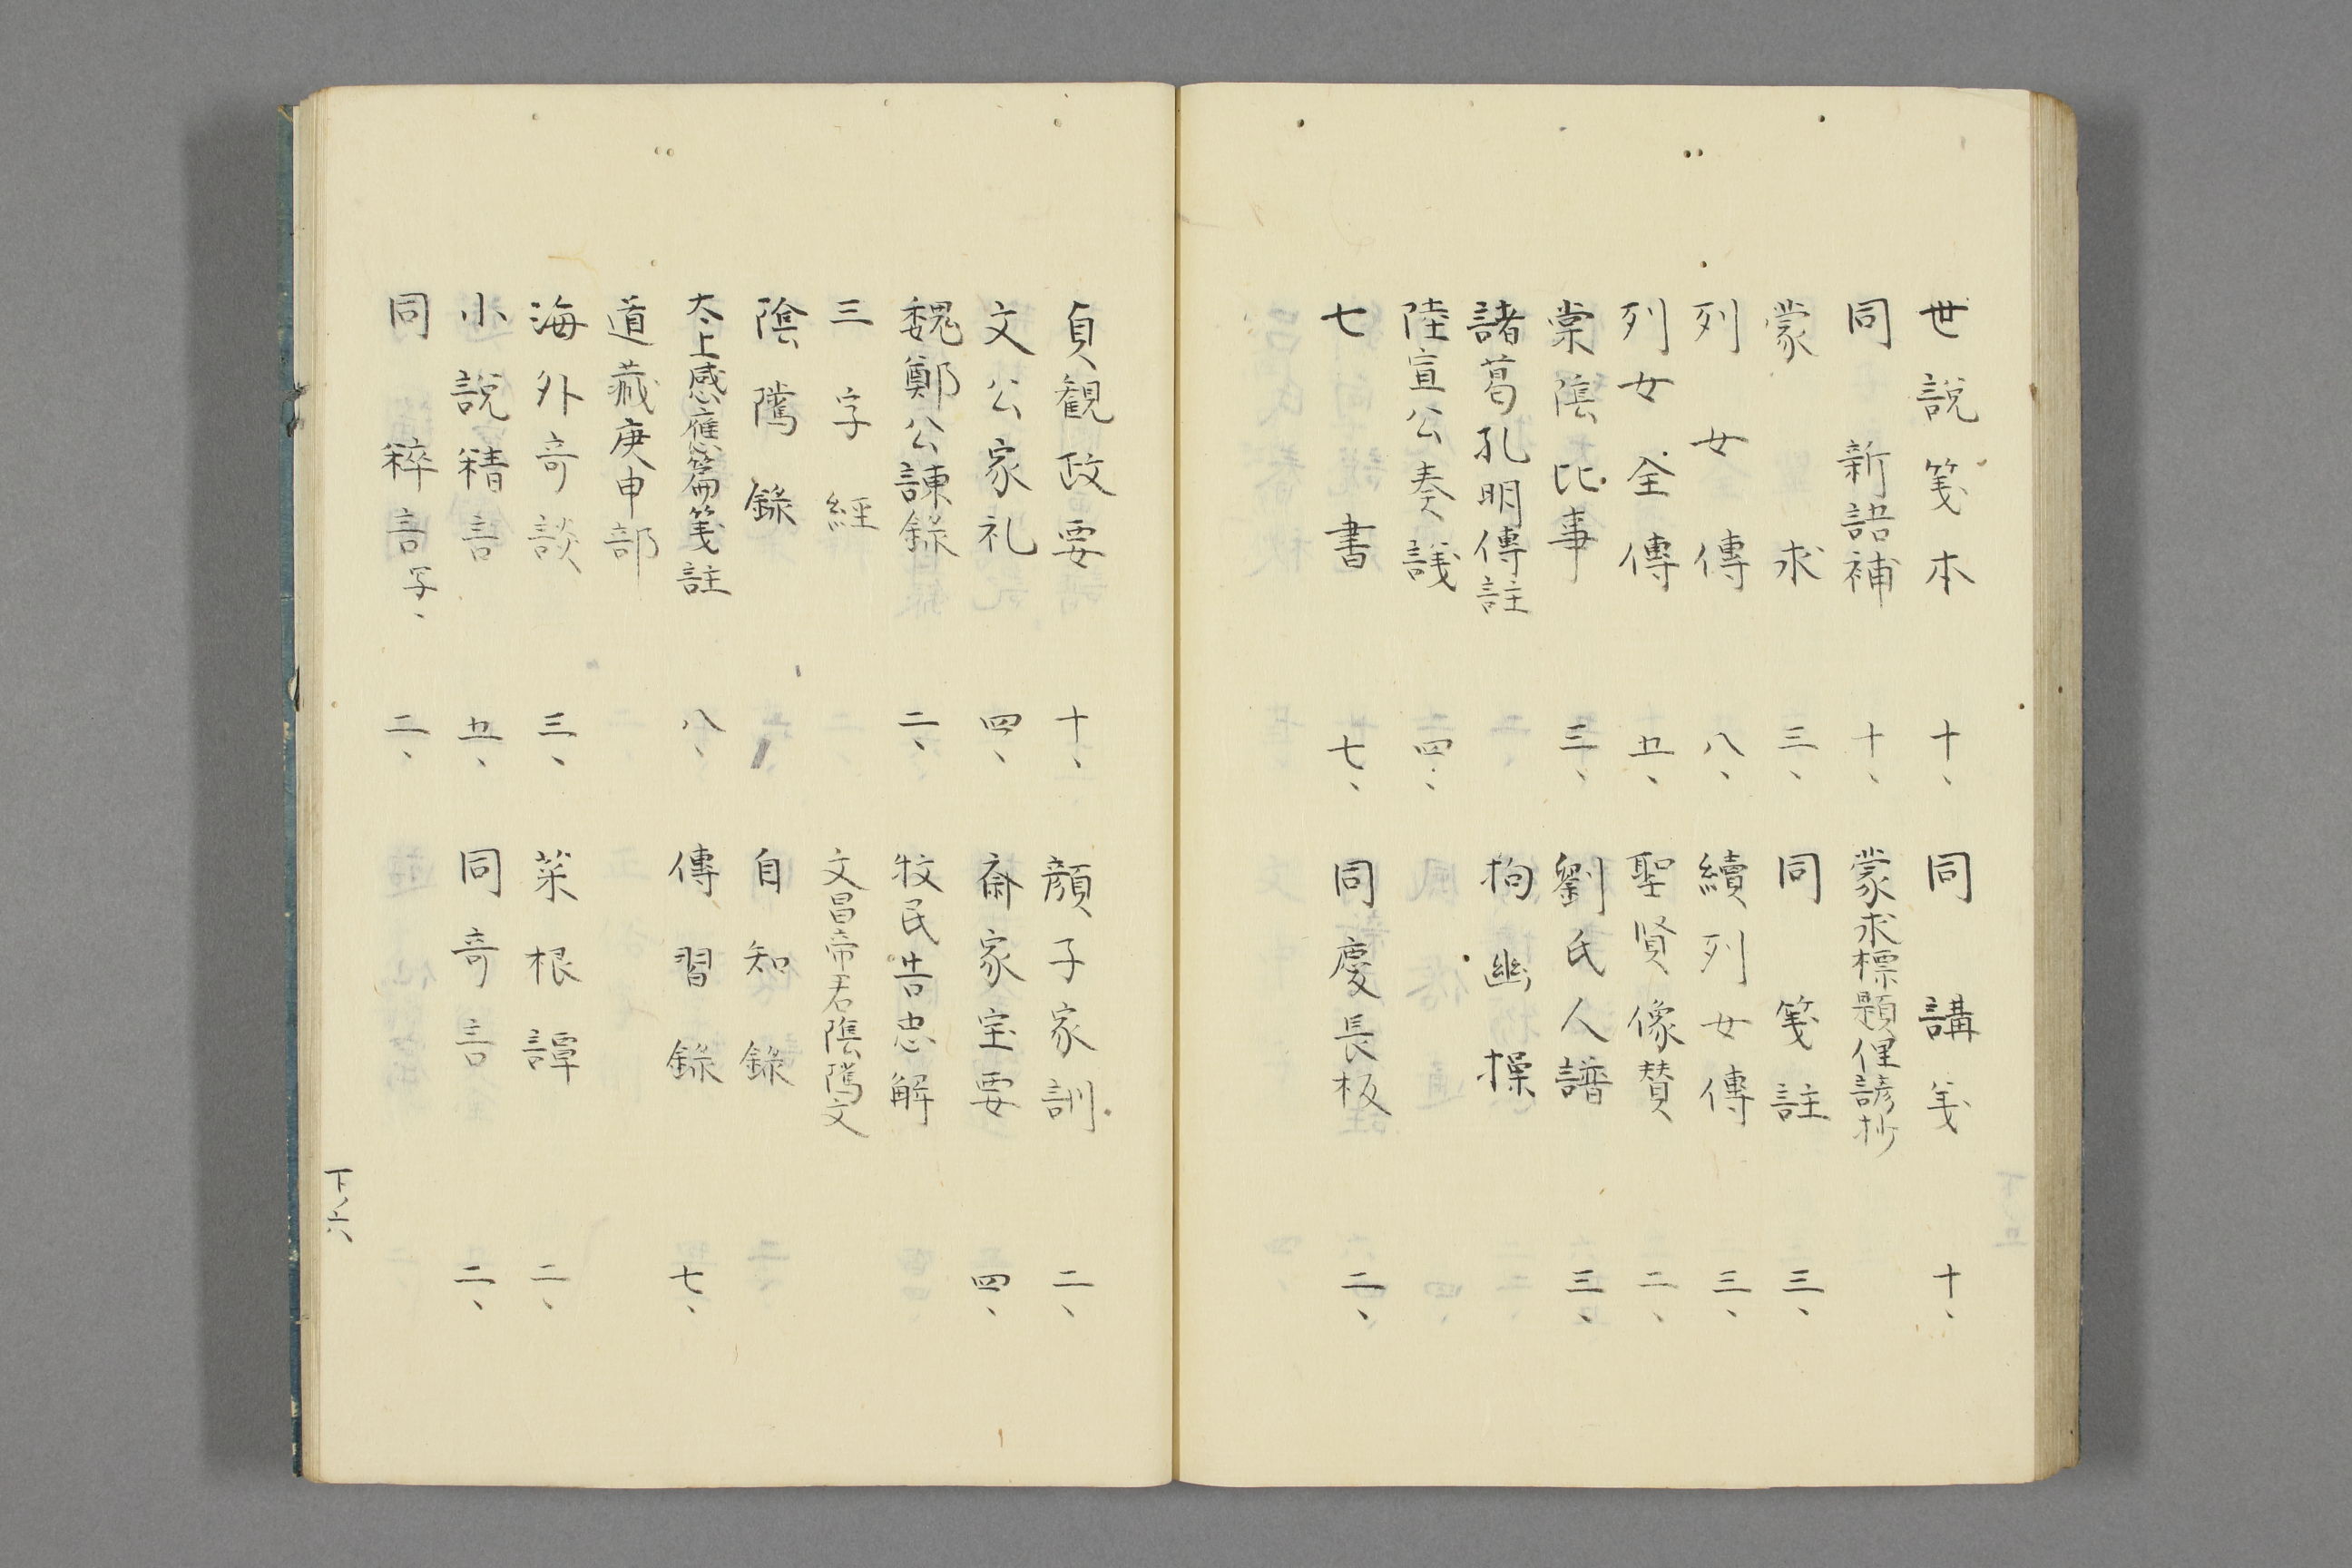 世説箋本 十、 同講箋 十、
同新語補 十、 蒙求標題俚諺抄
蒙求 三、 同箋註 三、
列女傳 八、 續列女傳 三、
列女全傳 五、 聖賢像賛 二、
棠陰比事 三、 劉氏人譜 三、
諸葛孔明傳註 拘幽操
陸宣公奏議 四、
七書 七、 同慶長板 二、
貞観政要 十、 顔子家訓 二、
文公家礼 四、 斎家宝要 四、
魏鄭公諌錄 二、 牧民告忠解
三字經 文昌帝君隂隲文
陰隲錄 自知錄
太上感應篇箋註 八、 傳習錄 七、
道藏庚申部
海外奇談 三、 菜根譚 二、
小説精言 五、 同奇言 二、
同粹言写、 二、
下ノ六